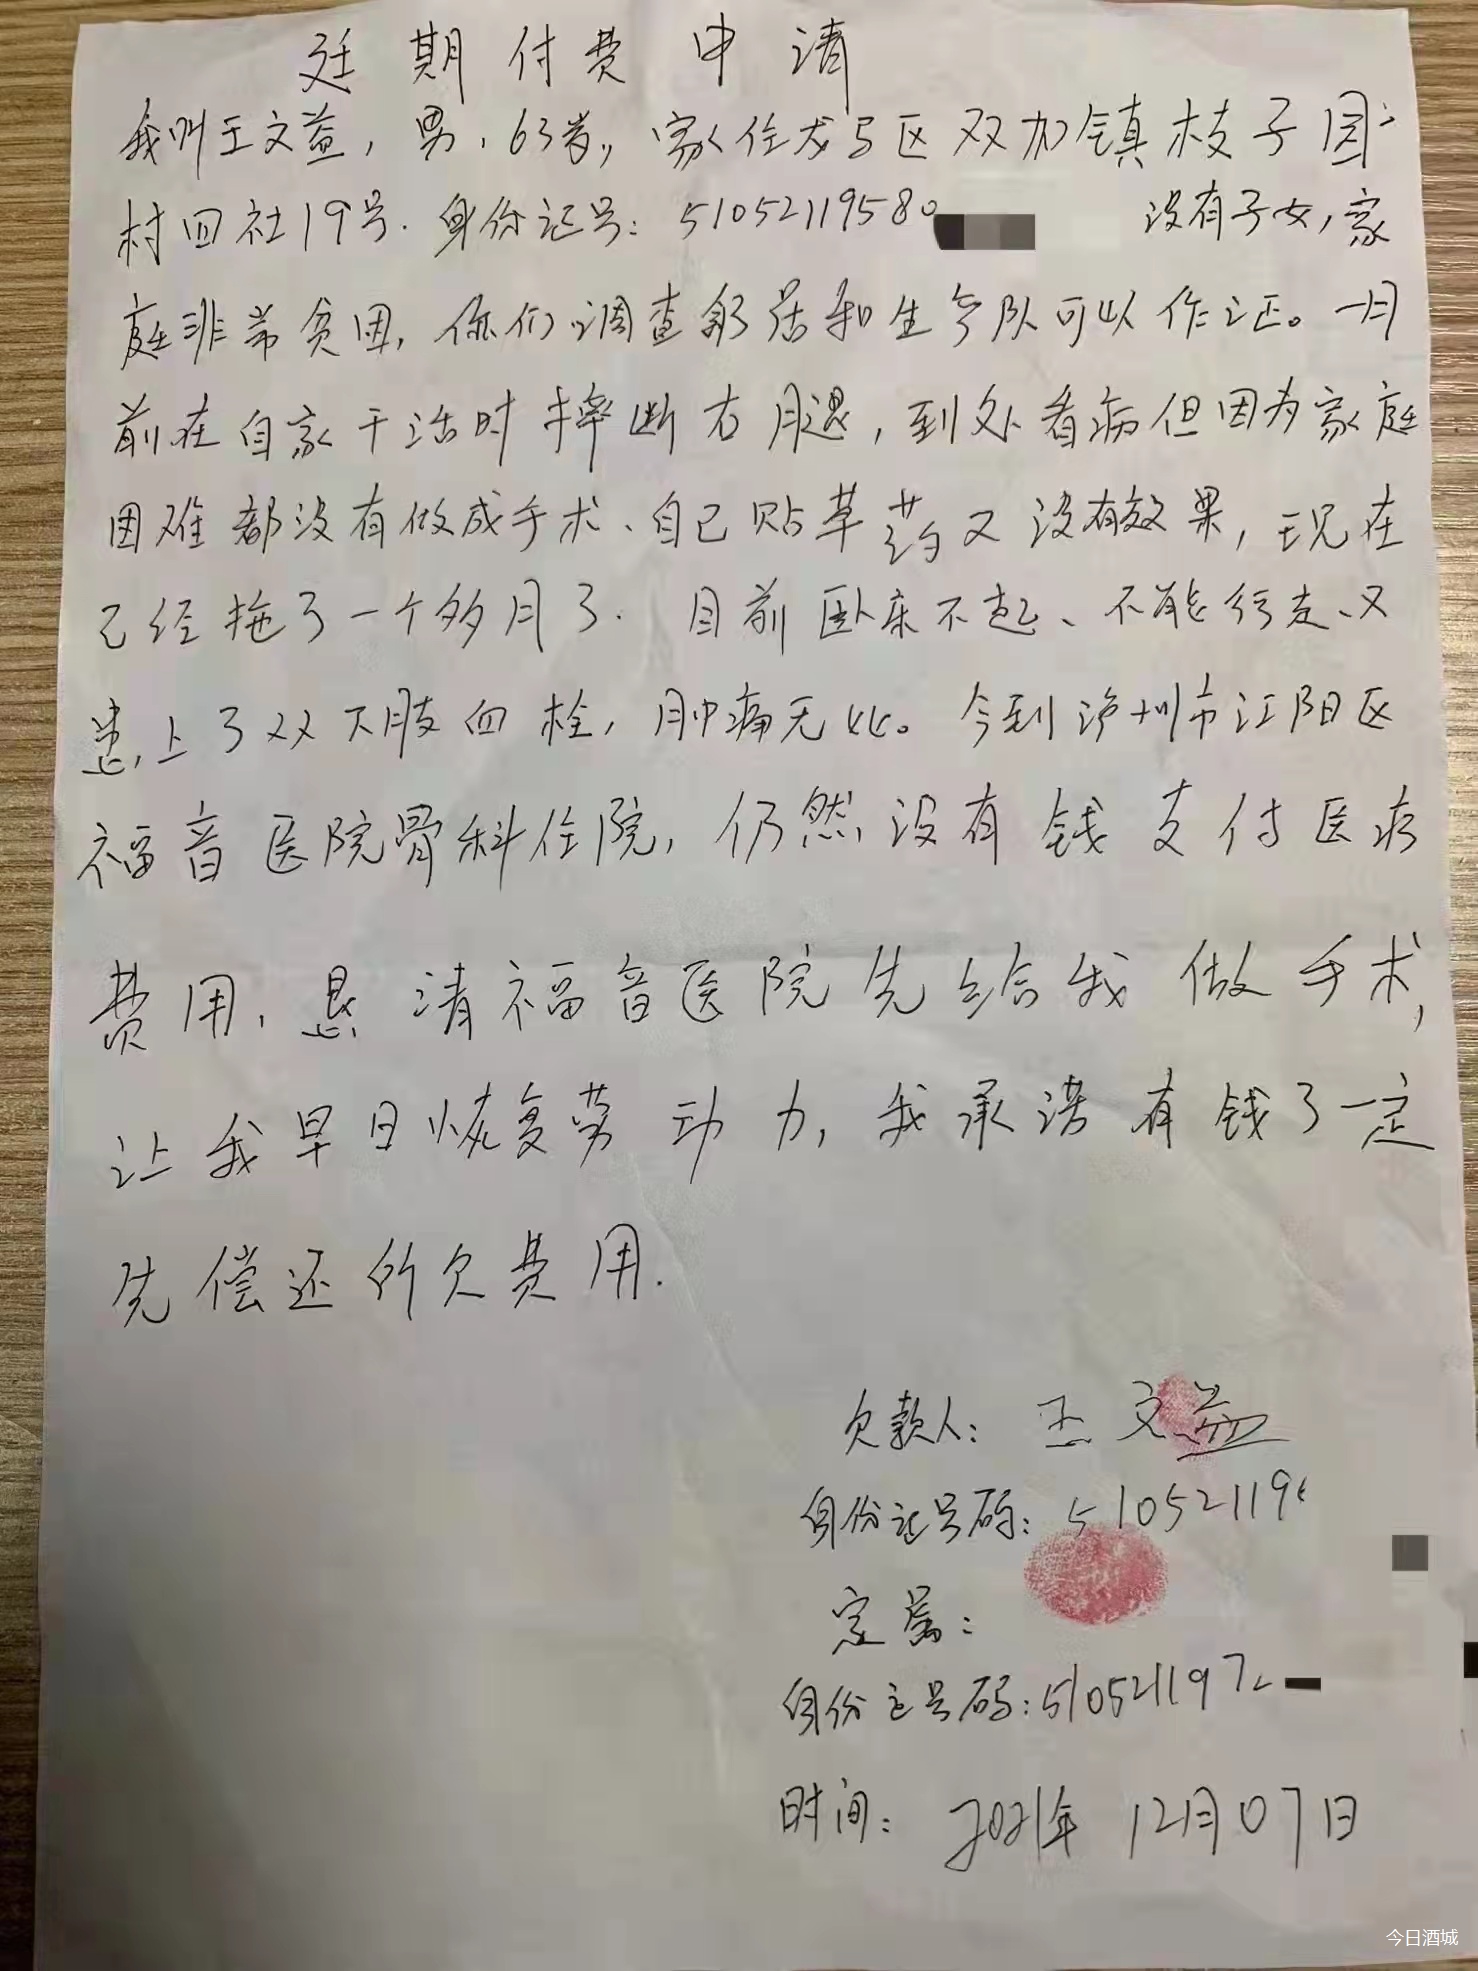 延期付费申请
我叫王文益，男，63岁，家住龙马区双加镇枝子园
村四社19号.身份证号：5105211958 没有子女，家
庭非常贫困，你们调查邻居和生产队可以作证。一月
前在自家干活时摔断右腿，到处看病但因为家庭
困难都没有做成手术、自己贴草药又没有效果，现在
已经拖了一个多月了.目前卧床不起、不能行走、又
患上了双下肢血栓，肿痛无比。今到泸州市江阳区
福音医院骨科住院，仍然没有钱支付医疗
费用，恳请福音医院先给我做手术，
让我早日恢复劳动力，我承诺有钱了一定
先偿还所欠费用.
欠款人：王文益
身份证号码：51052119
家属：
身份证号码：510521197
时间：2021年12月07日
今日酒城